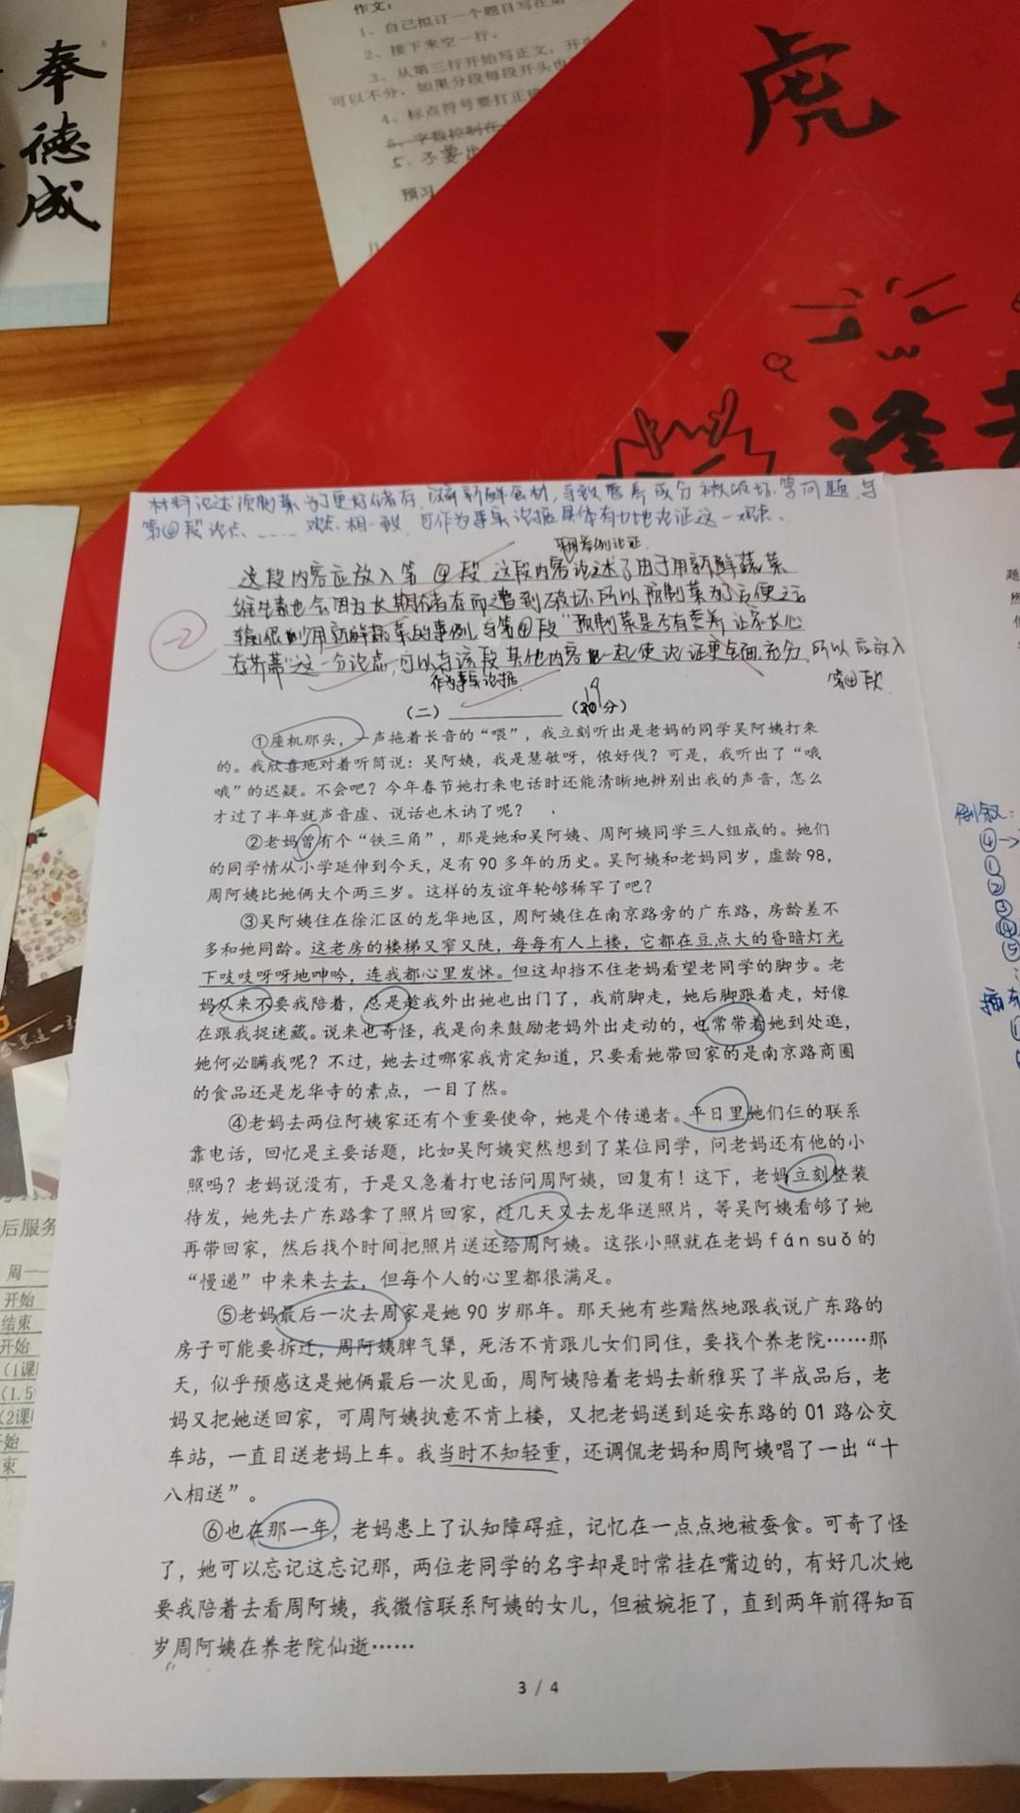 奉
德
成
作文：
1、自己拟订一个题目写在第一
2、接下来空一行。
3、从第三行开始写正文，开头
可以不分，如果分段每段开头也
4、标点符号要打正确
5、字数控制在
5、不要出
预习
虎
逢考
材料论述预制菜为了更好储存，没有新鲜食材，导致营养成分被破坏等问题，与
第④段论点……观点相一致，可作为事实论据具体有力地论证这一观点。
用举例论证
这段内容应放入第④段 这段内容论述了由于用新鲜蔬菜
维生素也会因为长期储存在而遭到破坏所以预制菜为了方便运
输很少用新鲜蔬菜的事例，与第④段“预制菜是否有营养 让家长心
存芥蒂”这一分论点，可以与该段其他内容一起使论证更全面充分，所以应放入
作为事实论据
第④段
-2
（二）____________（20分）
19
①座机那头，一声拖着长音的“喂”，我立刻听出是老妈的同学吴阿姨打来
的。我欣喜地对着听筒说：吴阿姨，我是慧敏呀，侬好伐？可是，我听出了“哦
哦”的迟疑。不会吧？今年春节她打来电话时还能清晰地辨别出我的声音，怎么
才过了半年就声音虚、说话也木讷了呢？
②老妈曾有个“铁三角”，那是她和吴阿姨、周阿姨同学三人组成的。她们
的同学情从小学延伸到今天，足有 90 多年的历史。吴阿姨和老妈同岁，虚龄 98，
周阿姨比她俩大个两三岁。这样的友谊年轮够稀罕了吧？
③吴阿姨住在徐汇区的龙华地区，周阿姨住在南京路旁的广东路，房龄差不
多和她同龄。这老房的楼梯又窄又陡，每每有人上楼，它都在豆点大的昏暗灯光
下吱吱呀呀地呻吟，连我都心里发怵。但这却挡不住老妈看望老同学的脚步。老
妈从来不要我陪着，总是趁我外出她也出门了，我前脚走，她后脚跟着走，好像
在跟我捉迷藏。说来也奇怪，我是向来鼓励老妈外出走动的，也常带着她到处逛，
她何必瞒我呢？不过，她去过哪家我肯定知道，只要看她带回家的是南京路商圈
的食品还是龙华寺的素点，一目了然。
④老妈去两位阿姨家还有个重要使命，她是个传递者。平日里她们仨的联系
靠电话，回忆是主要话题，比如吴阿姨突然想到了某位同学，问老妈还有他的小
照吗？老妈说没有，于是又急着打电话问周阿姨，回复有！这下，老妈立刻整装
待发，她先去广东路拿了照片回家，过几天又去龙华送照片，等吴阿姨看够了她
再带回家，然后找个时间把照片送还给周阿姨。这张小照就在老妈 fán suǒ 的
“慢递”中来来去去，但每个人的心里都很满足。
⑤老妈最后一次去周家是她 90 岁那年。那天她有些黯然地跟我说广东路的
房子可能要拆迁，周阿姨脾气犟，死活不肯跟儿女们同住，要找个养老院……那
天，似乎预感这是她俩最后一次见面，周阿姨陪着老妈去新雅买了半成品后，老
妈又把她送回家，可周阿姨执意不肯上楼，又把老妈送到延安东路的 01 路公交
车站，一直目送老妈上车。我当时不知轻重，还调侃老妈和周阿姨唱了一出“十
八相送”。
⑥也在那一年，老妈患上了认知障碍症，记忆在一点点地被蚕食。可奇了怪
了，她可以忘记这忘记那，两位老同学的名字却是时常挂在嘴边的，有好几次她
要我陪着去看周阿姨，我微信联系阿姨的女儿，但被婉拒了，直到两年前得知百
岁周阿姨在养老院仙逝……
3 / 4
倒叙：
④→
①
②
③
④
⑤
插
后服务
周一
开始
结束
开始
（1课
（1.5
（2课
始
束